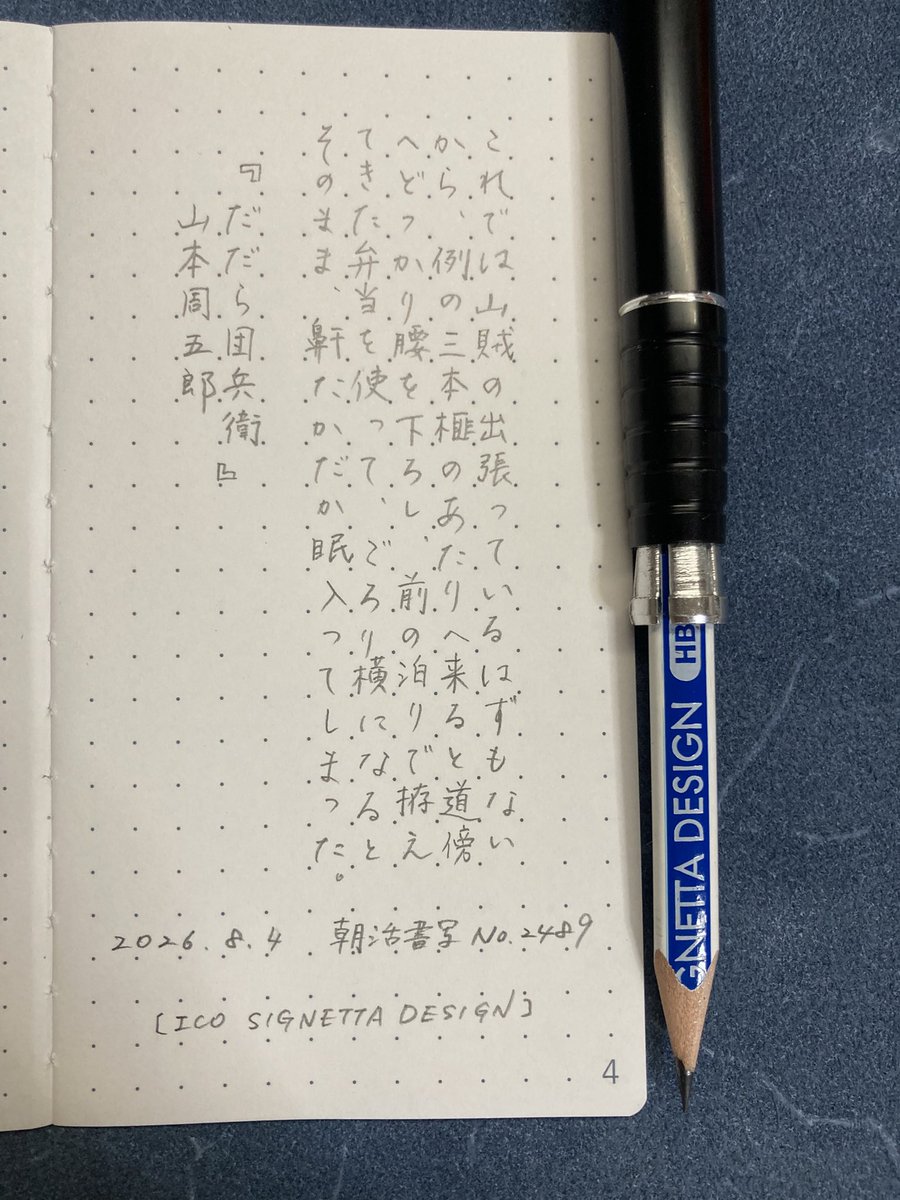 これでは山賊の出張っているはずもない
から、例の三本榧のあたりへ来ると道傍
へどっかり腰を下ろし、前の泊りで拵え
てきた弁当を使って、ごろり横になると
そのまま、鼾たかだか眠入ってしまった。
『だだら団兵衛』
山本周五郎
2026.8.4 朝活書写 No.2489
[ICO SIGNETTA DESIGN]
4
GNETTA DESIGN HB